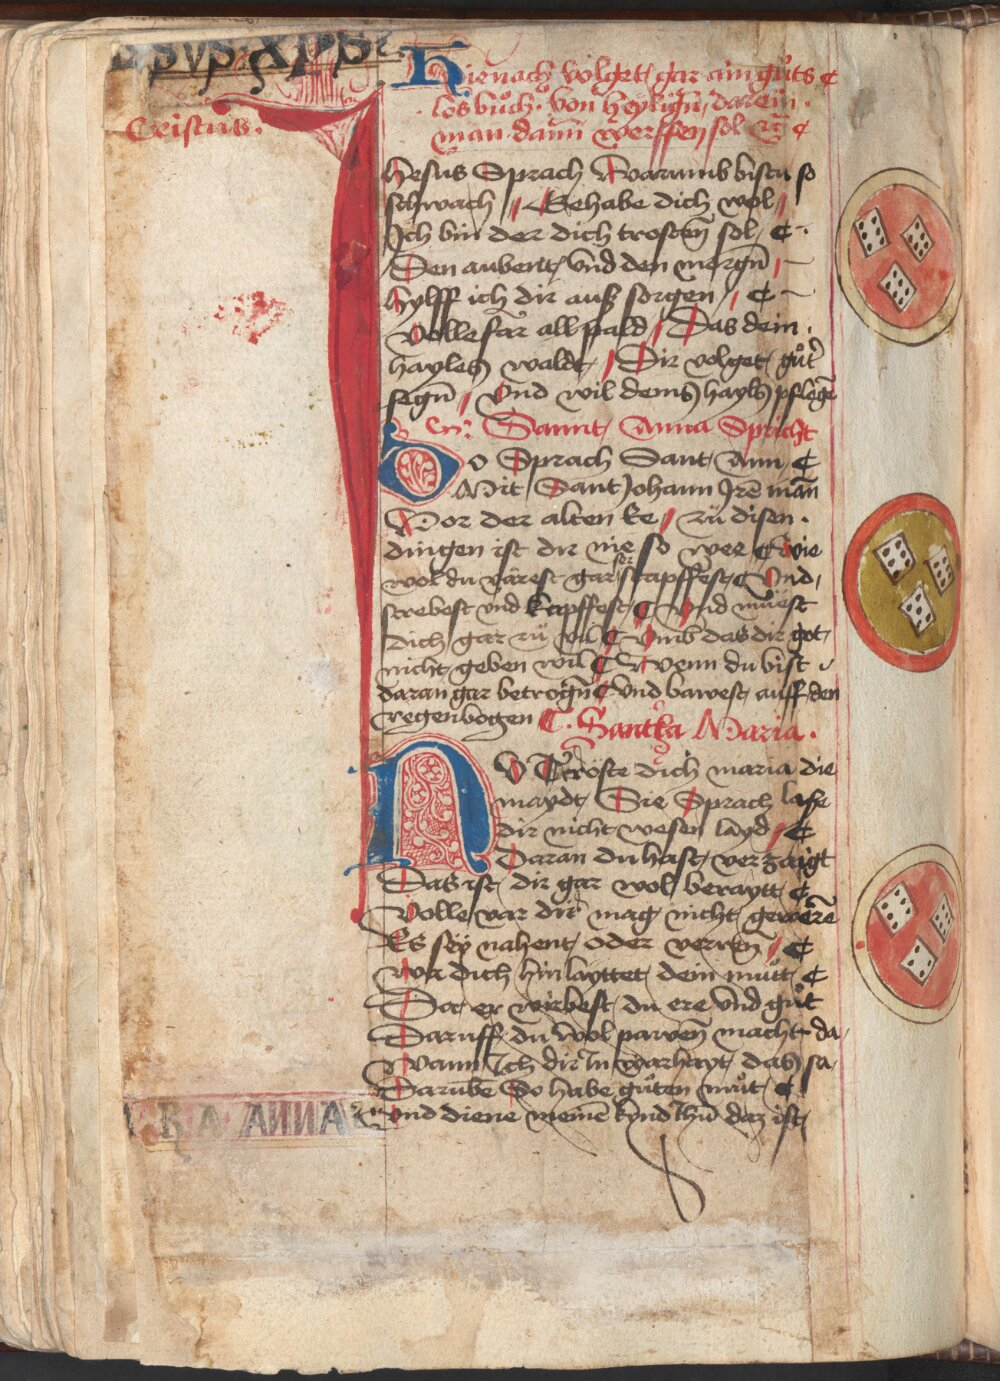 Hienach volget gar ain guͦts
losbuͦch von heyligen, darein
man dann werffen sol
Cristus.
Jhesus Sprach Warumb bistu so
schwach / Gehabe dich wol /
Ich bin der dich trosten̄ sol
Den aubent, vnd den morgn̄
hylff ich dir auß sorgen
Volle far all pald / Das dein
hayles waldt / Dir volget guͦt
segn̄ / Vnd wil deins hayls pflegē
Sannt Anna Spricht
So Sprach Sant Ann
Mit Sant Johann Irē man
Vor der alten Ee / zuͦ disen
dingen ist dir nie so wee Wie
wol du
strebest vnd kapffest Vnd muͤest
dich gar zuͦ vil Vmb das dir got
nicht geben wil Wenn du bist
daran gar betrogn̄ Vnd bawest auff den
regenbogen Santa Maria.
NV Tröste dich maria die
maydt Sie Sprach lase
dir nicht wesen layd
Daran du hast verzaigt
Das ist dir gar wol beraytt
Volle var dir mag nicht gewerē
Es sey nahent oder verren
wa dich hin layttet dein muͦtt
Da er wirbest du ere vnd guͦt
Daruff du wol pawen macht da
Wann Ich dir In warhayt das sa
Darumbe So habe guͦten muͦt
Vnd diene meinē kynd daz ist
ANNA